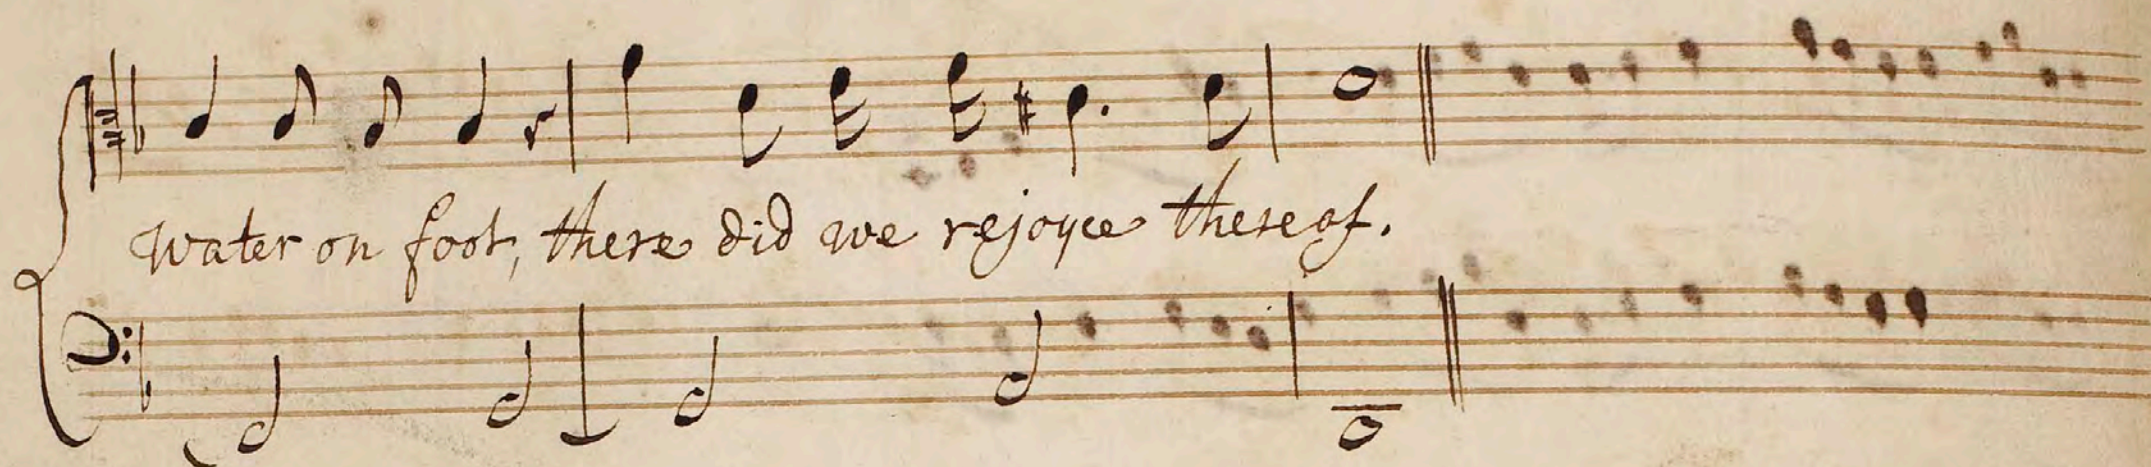 water on foot, there did we rejoyce thereof.